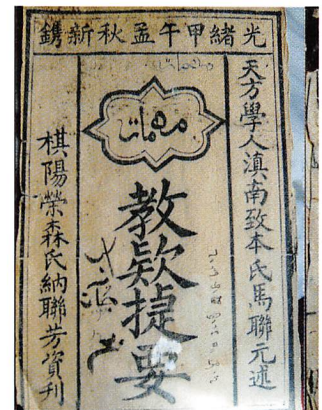 光緒甲午孟秋新鐫
天方學人滇南致本氏馬聯元述
مهمات
教欵捷要
棋陽榮森氏納聯芳資刊